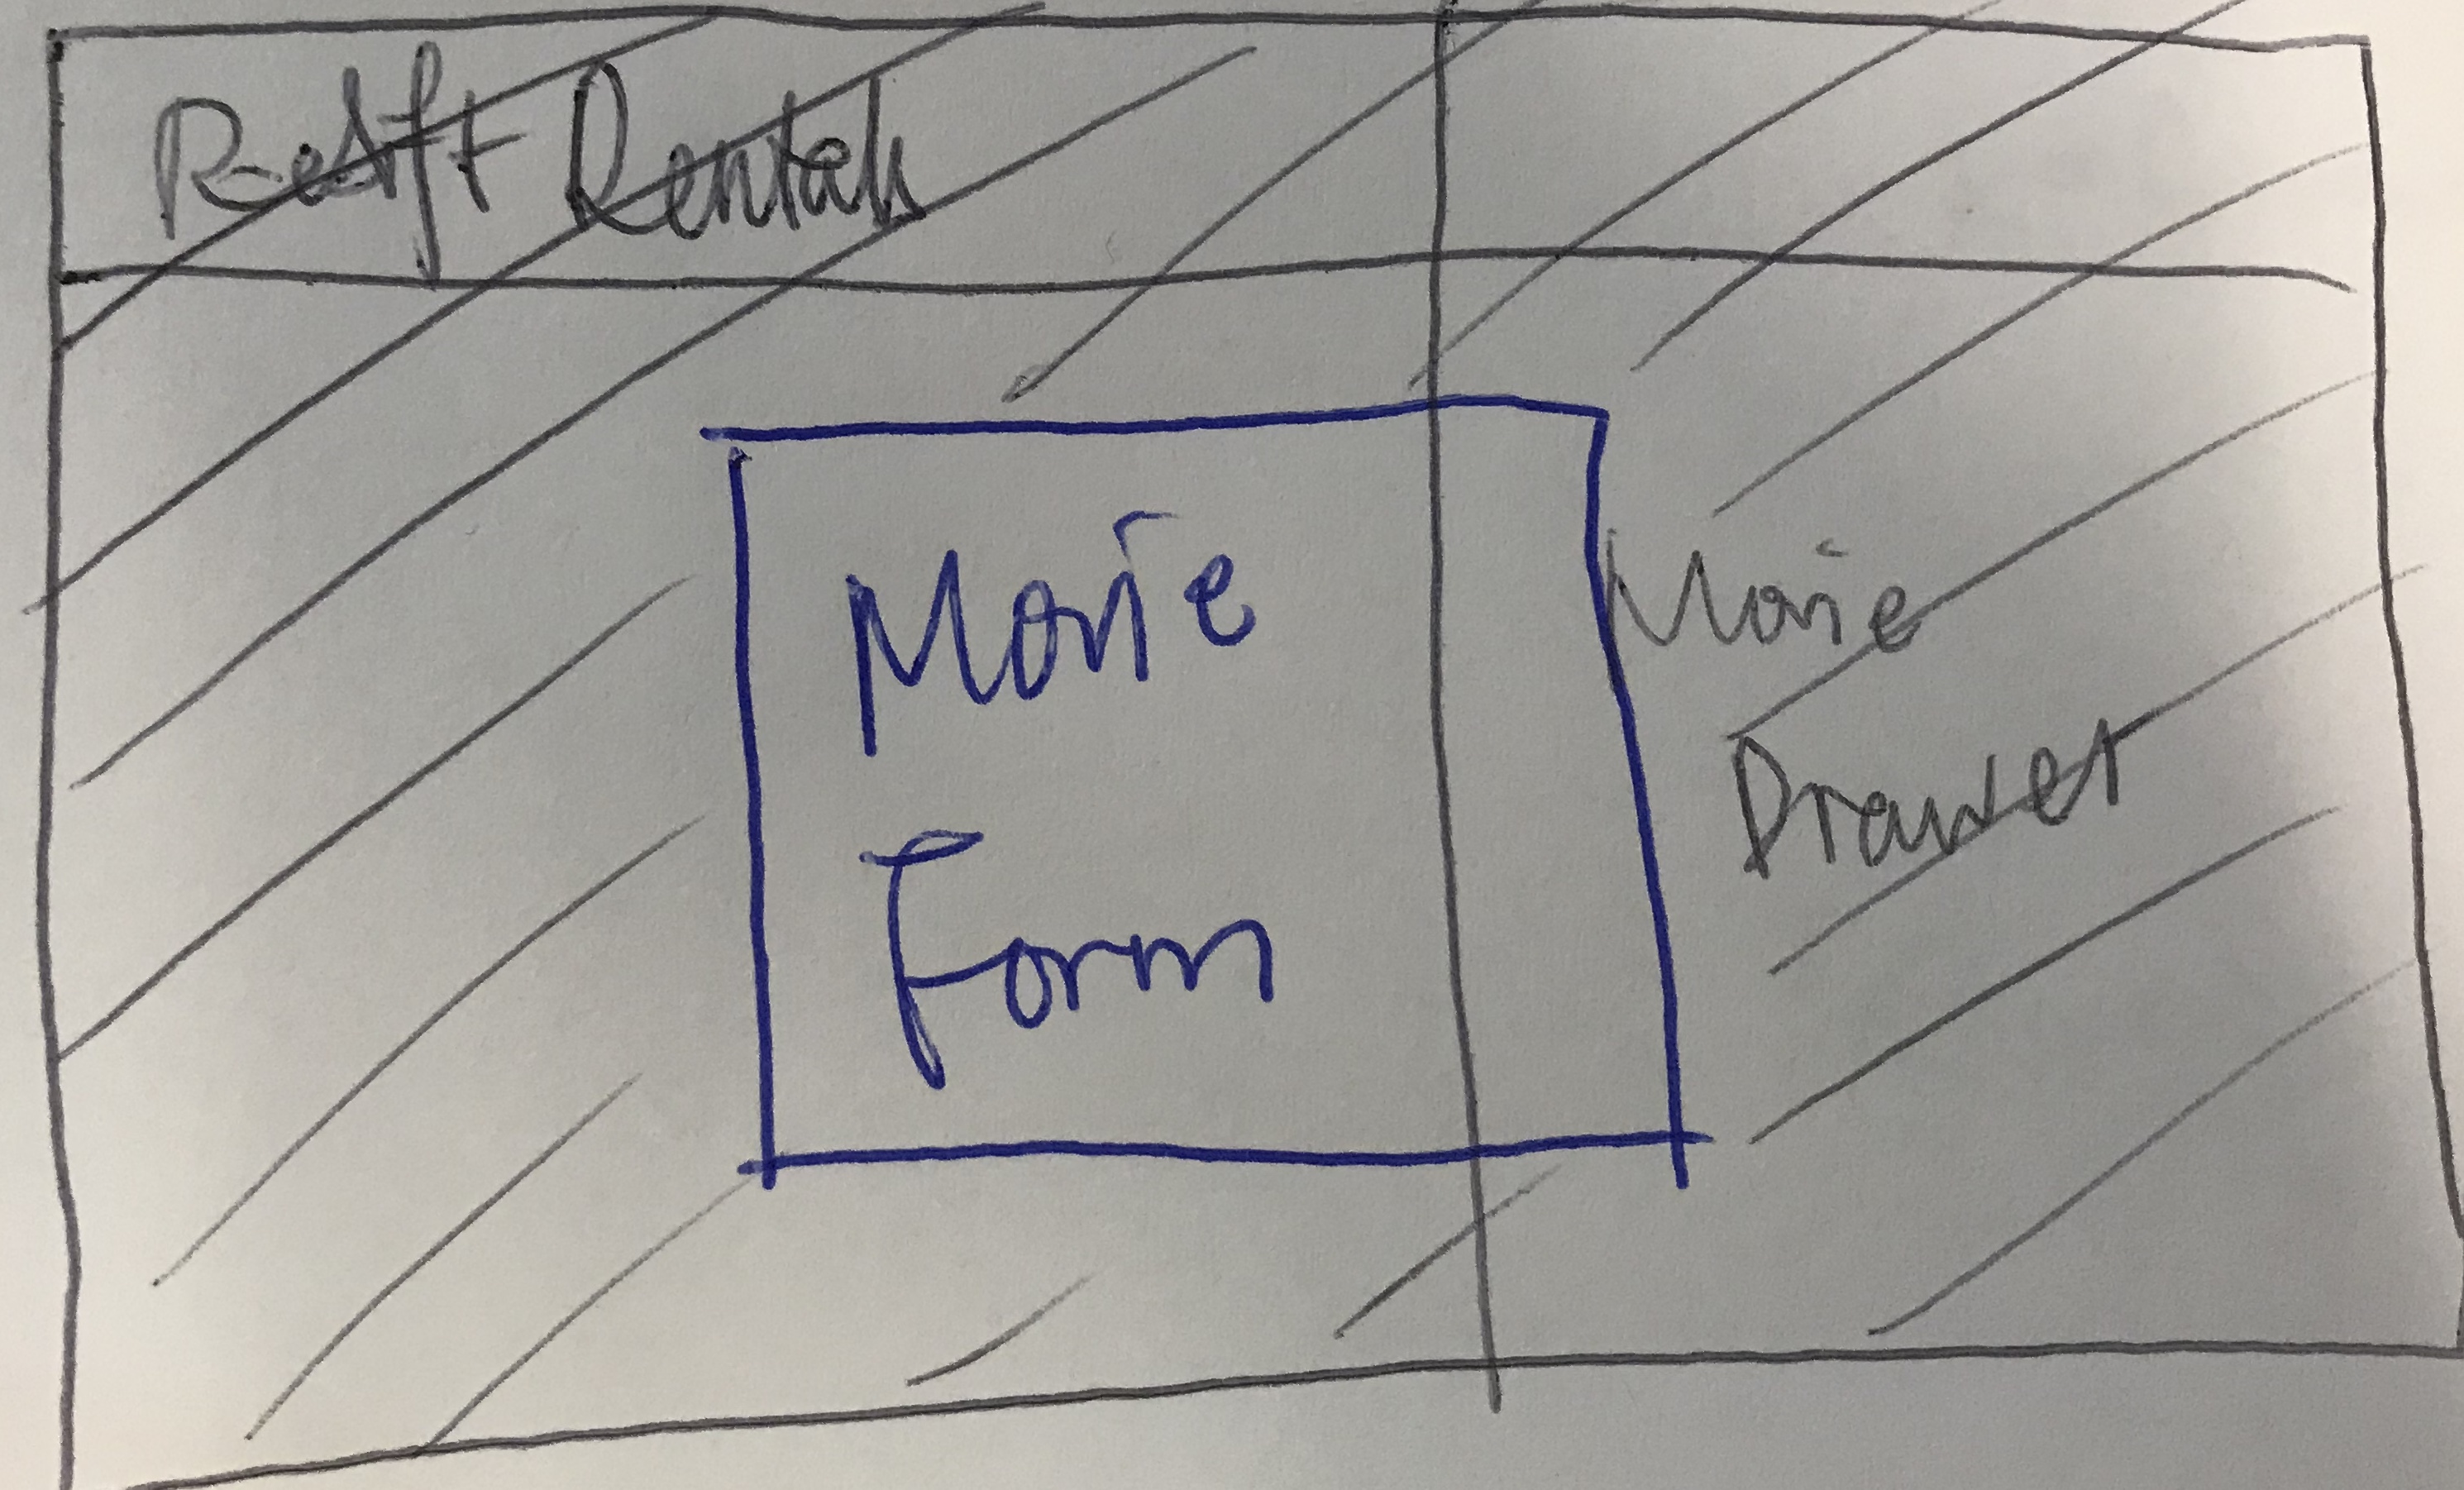 Rentals
Movie
Form
Movie
Drawer